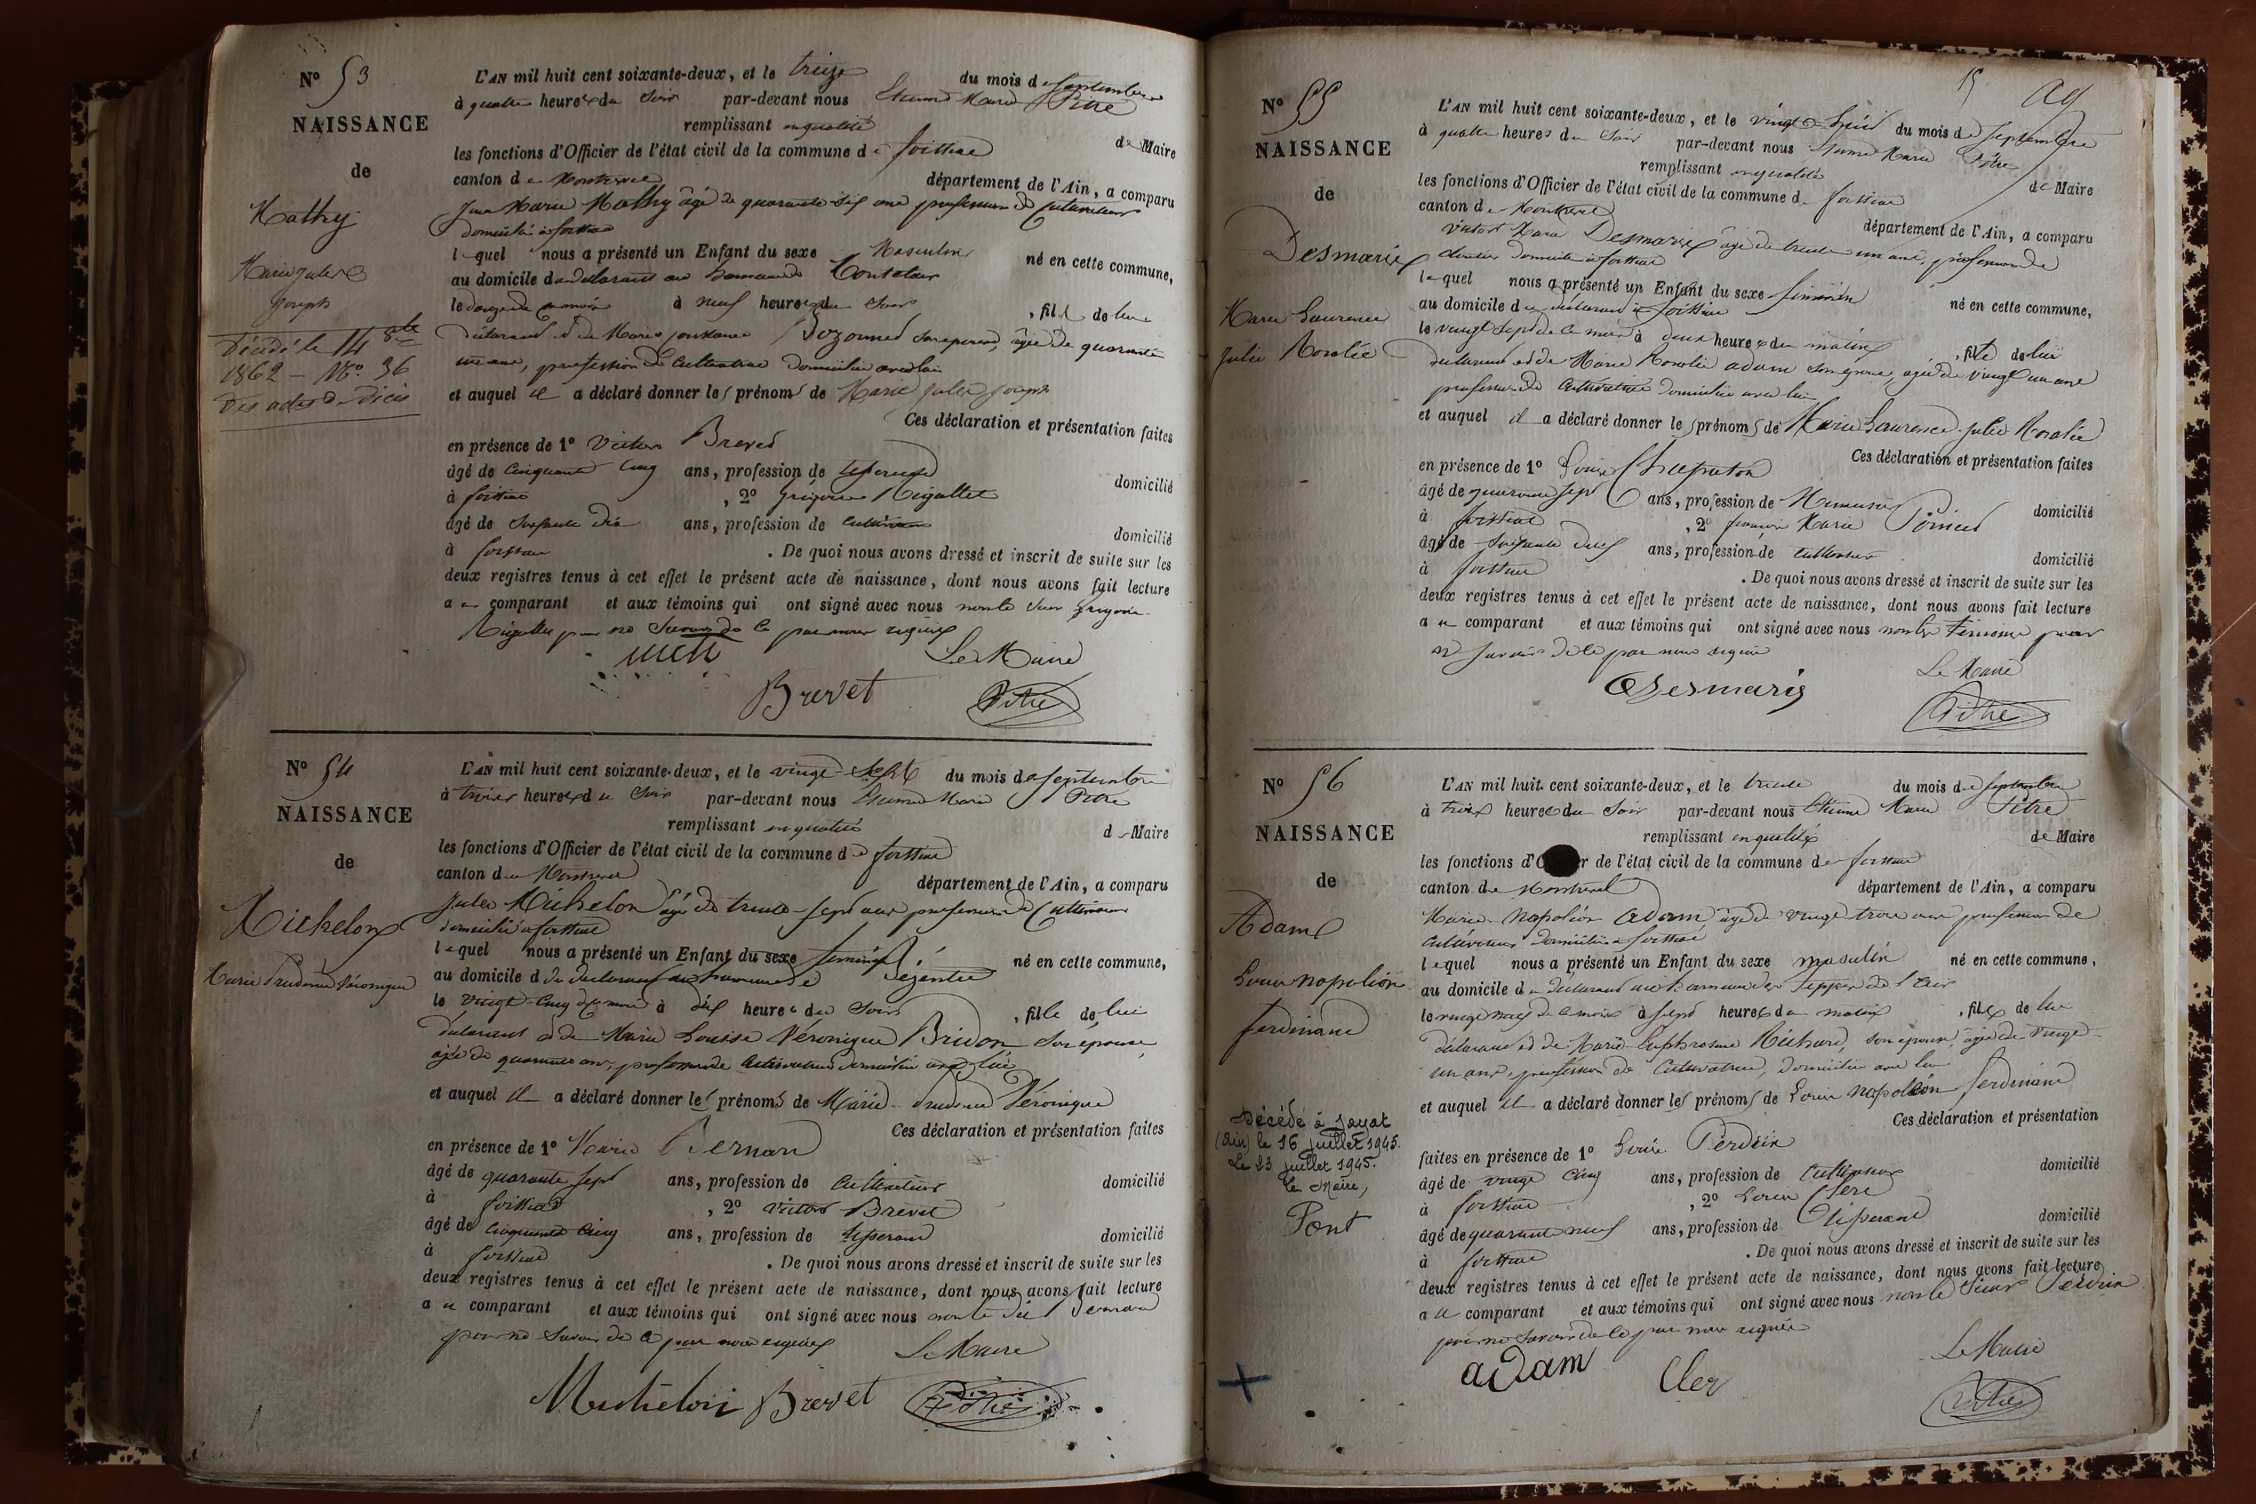 N° 53
NAISSANCE
de
Mathy
Marie Jules
Joseph
Décédé le 14 8bre
1862 – N° 36
des actes de décès
L'AN mil huit cent soixante-deux, et le treize du mois de septembre
à quatre heures du soir par-devant nous Etienne Marie Pitre
remplissant en qualité de Maire
les fonctions d'Officier de l'état civil de la commune de foissiat
canton de Montrevel département de l'Ain, a comparu
Jean Marie Mathy âgé de quarante six ans profession de Cultivateur
domicilié à foissiat
lequel nous a présenté un Enfant du sexe Masculin né en cette commune,
au domicile du déclarant au hameau de
le douze de ce mois à neuf heures du soir, fils de lui
déclarant et de Marie son épouse, âgée de quarante
un ans, profession de Cultivatrice domiciliée avec lui
et auquel il a déclaré donner les prénoms de Marie Jules Joseph
Ces déclaration et présentation faites
en présence de 1° Victor Brevet
âgé de Cinquante Cinq ans, profession de tisserand domicilié
à foissiat, 2° Grégoire Rigollet
âgé de soixante dix ans, profession de Cultivateur domicilié
à foissiat. De quoi nous avons dressé et inscrit de suite sur les
deux registres tenus à cet effet le présent acte de naissance, dont nous avons fait lecture
au comparant et aux témoins qui ont signé avec nous non le sieur Grégoire
Rigollet pour ne savoir de ce par nous requis
Le Maire
Brevet Pitre
N° 54
NAISSANCE
de
Michelon
Marie Prudence Véronique
L'AN mil huit cent soixante-deux, et le vingt-sept du mois de septembre
à trois heures du soir par-devant nous Etienne Marie Pitre
remplissant en qualité de Maire
les fonctions d'Officier de l'état civil de la commune de foissiat
canton de Montrevel département de l'Ain, a comparu
Jules Michelon âgé de trente-sept ans profession de Cultivateur
domicilié à foissiat
lequel nous a présenté un Enfant du sexe féminin né en cette commune,
au domicile du déclarant au hameau de
le vingt-cinq de ce mois à dix heures du soir, fille de lui
déclarant et de Marie Louise Véronique Bridon son épouse,
âgée de quarante ans, profession de Cultivatrice domiciliée avec lui
et auquel il a déclaré donner les prénoms de Marie Prudence Véronique
Ces déclaration et présentation faites
en présence de 1° Marie Bernard
âgé de quarante sept ans, profession de Cultivateur domicilié
à foissiat, 2° Victor Brevet
âgé de Cinquante Cinq ans, profession de tisserand domicilié
à foissiat. De quoi nous avons dressé et inscrit de suite sur les
deux registres tenus à cet effet le présent acte de naissance, dont nous avons fait lecture
au comparant et aux témoins qui ont signé avec nous non le dit Bernard
pour ne savoir de ce par nous requis
Le Maire
Michelon Brevet Pitre
15
N° 55
NAISSANCE
de
Desmaris
Marie Laurence
Julie Rosalie
L'AN mil huit cent soixante-deux, et le vingt-huit du mois de septembre
à quatre heures du soir par-devant nous Etienne Marie Pitre
remplissant en qualité de Maire
les fonctions d'Officier de l'état civil de la commune de foissiat
canton de Montrevel département de l'Ain, a comparu
Victor Marie Desmaris âgé de trente un ans, profession de
domicilié à foissiat
lequel nous a présenté un Enfant du sexe féminin né en cette commune,
au domicile du déclarant à foissiat
le vingt sept de ce mois à deux heures du matin, fille de lui
déclarant et de Marie Rosalie adam son épouse, âgée de vingt un ans
profession de Cultivatrice domiciliée avec lui
et auquel il a déclaré donner les prénoms de Marie Laurence Julie Rosalie
Ces déclaration et présentation faites
en présence de 1° Louis Chapaton
âgé de quarante sept ans, profession de Menuisier domicilié
à foissiat, 2° françois Marie
âgé de soixante ans, profession de Cultivateur domicilié
à foissiat. De quoi nous avons dressé et inscrit de suite sur les
deux registres tenus à cet effet le présent acte de naissance, dont nous avons fait lecture
au comparant et aux témoins qui ont signé avec nous non les témoins pour
ne savoir de ce par nous requis
Le Maire
Desmaris Pitre
N° 56
NAISSANCE
de
Adam
Louis Napoléon
ferdinand
Décédé à Jayat
(Ain) le 16 juillet 1945.
Le 23 juillet 1945.
Le Maire,
Pont
L'AN mil huit cent soixante-deux, et le trente du mois de septembre
à trois heures du soir par-devant nous Etienne Marie Pitre
remplissant en qualité de Maire
les fonctions d'O r de l'état civil de la commune de foissiat
canton de Montrevel département de l'Ain, a comparu
Marie Napoléon adam âgé de vingt trois ans profession de
cultivateur domicilié à foissiat
lequel nous a présenté un Enfant du sexe masculin né en cette commune,
au domicile du déclarant au hameau de
le vingt neuf de ce mois à sept heures du matin, fils de lui
déclarant et de Marie Euphrosine Richard, son épouse, âgée de vingt-
un ans, profession de Cultivatrice, domiciliée avec lui
et auquel il a déclaré donner les prénoms de Louis Napoléon ferdinand
Ces déclaration et présentation
faites en présence de 1° Louis Perdrix
âgé de vingt cinq ans, profession de Cultivateur domicilié
à foissiat, 2° Louis Clerc
âgé de quarante neuf ans, profession de tisserand domicilié
à foissiat. De quoi nous avons dressé et inscrit de suite sur les
deux registres tenus à cet effet le présent acte de naissance, dont nous avons fait lecture
au comparant et aux témoins qui ont signé avec nous non le sieur Perdrix
pour ne savoir de ce par nous requis
Le Maire
adam Cler Pitre